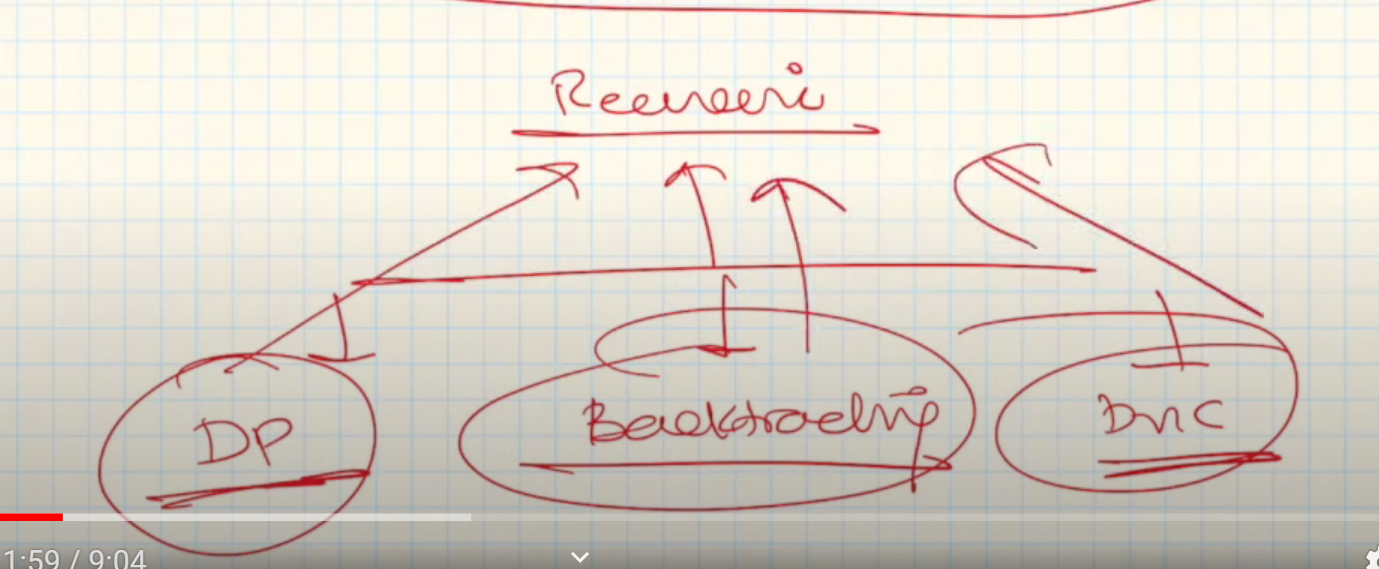 Recursi
DP Backtracking DnC
1:59 / 9:04